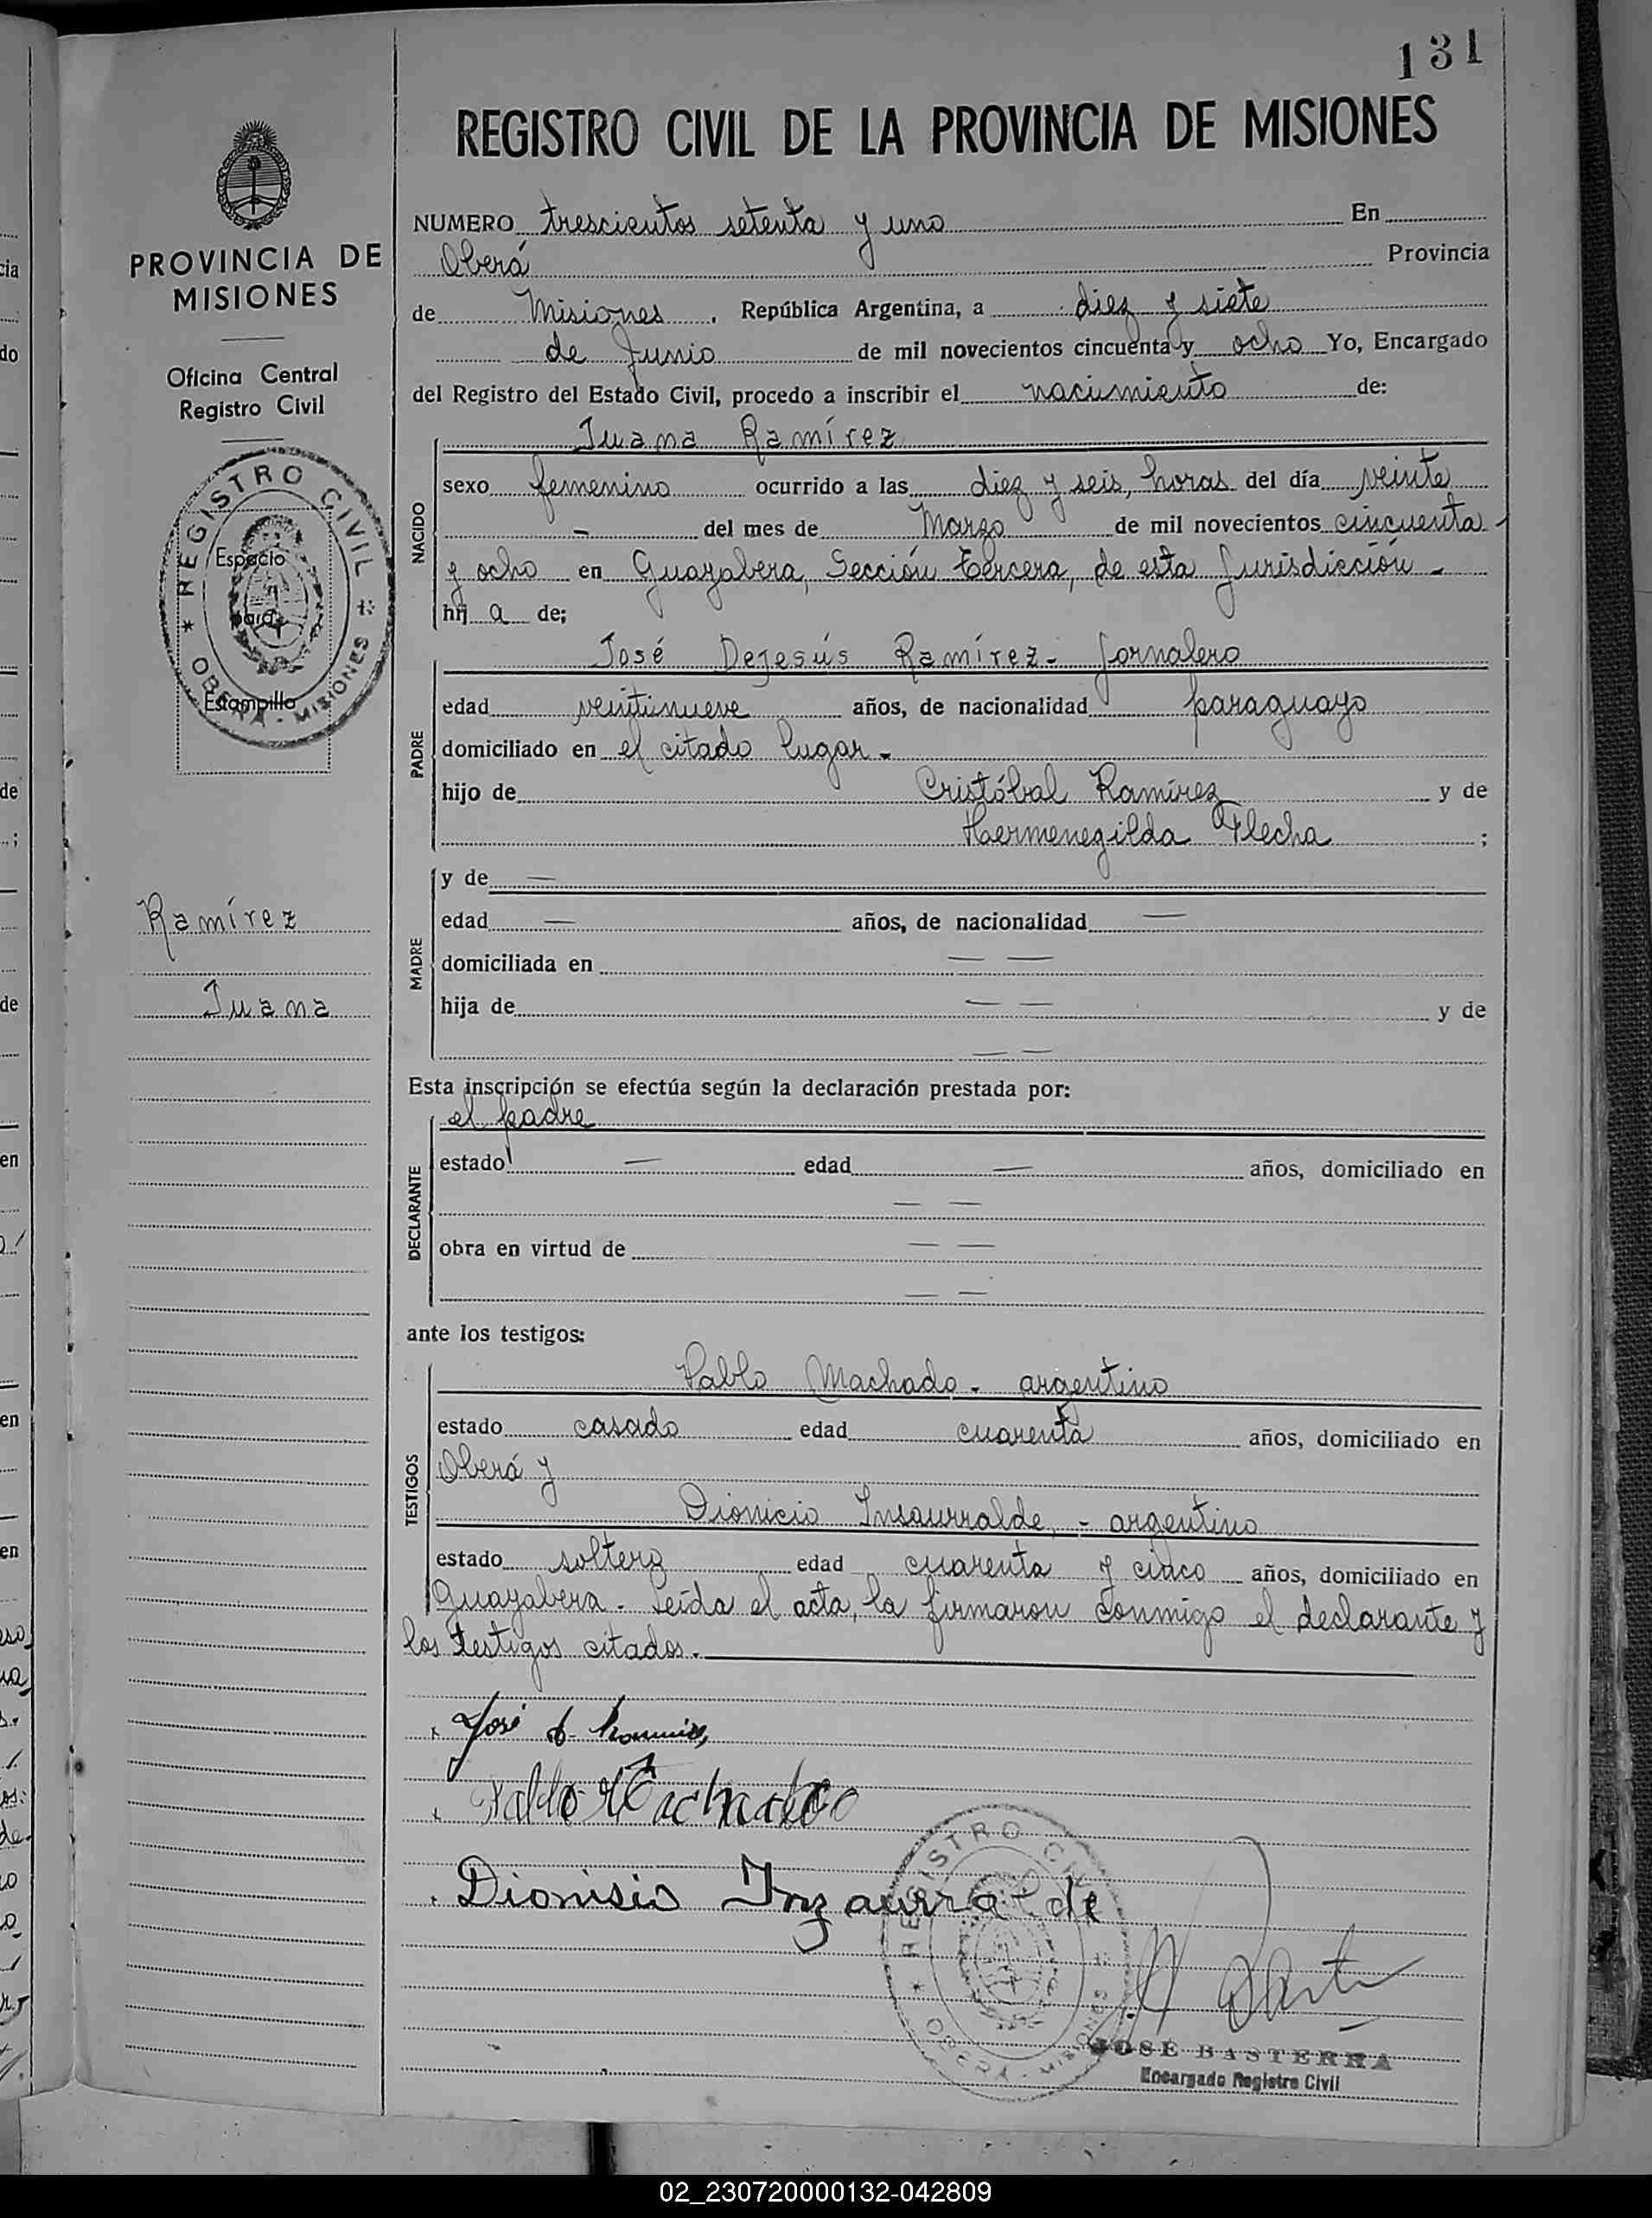 131
REGISTRO CIVIL DE LA PROVINCIA DE MISIONES
PROVINCIA DE
MISIONES
Oficina Central
Registro Civil
REGISTRO CIVIL
OBERA - MISIONES
Espacio
para
Estampilla
Ramírez
Juana
NUMERO trescientos setenta y uno En
Oberá Provincia
de Misiones. República Argentina, a diez y siete
de Junio de mil novecientos cincuenta y ocho Yo, Encargado
del Registro del Estado Civil, procedo a inscribir el nacimiento de:
Juana Ramírez
NACIDO
sexo femenino ocurrido a las diez y seis, horas del día veinte
- del mes de Marzo de mil novecientos cincuenta
y ocho en Guayabera, Sección tercera, de esta Jurisdicción -
hij a de;
José DeJesús Ramírez - Jornalero
PADRE
edad veintinueve años, de nacionalidad paraguayo
domiciliado en el citado lugar -
hijo de Cristóbal Ramírez y de
Hermenegilda Flecha ;
MADRE
y de —
edad — años, de nacionalidad —
domiciliada en — —
hija de — — y de
— —
Esta inscripción se efectúa según la declaración prestada por:
el padre
DECLARANTE
estado — edad — años, domiciliado en
— —
obra en virtud de — —
— —
ante los testigos:
Pablo Machado - argentino
TESTIGOS
estado casado edad cuarenta años, domiciliado en
Oberá y
Dionicio Insaurralde, - argentino
estado soltero edad cuarenta y cinco años, domiciliado en
Guayabera - Leída el acta, la firmaron conmigo el declarante y
los testigos citados.
José d. Ramirez
Pablo Machado
Dionisio Inzaurralde
REGISTRO CIVIL
OBERA - MISIONES
JOSÉ BASTERRA
Encargado Registro Civil
02_230720000132-042809